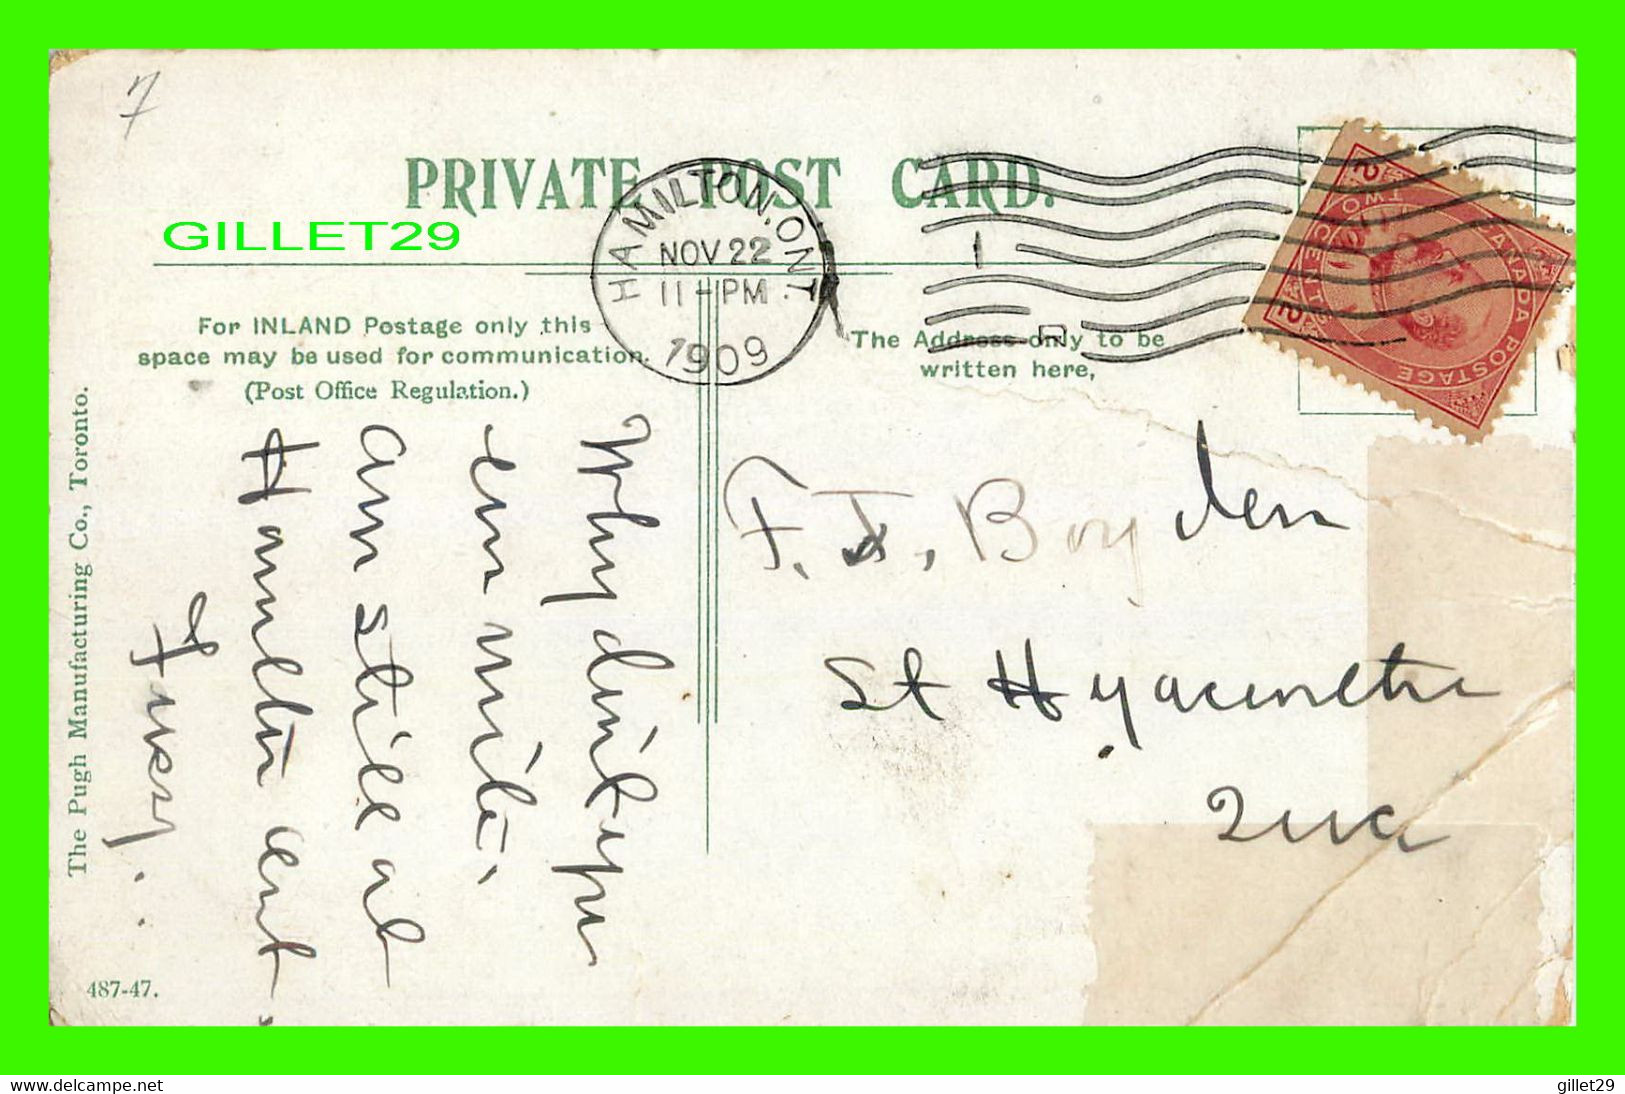 7
PRIVATE POST CARD.
GILLET29
HAMILTON, ONT.
NOV 22
11-PM
1909
1
CANADA POSTAGE
TWO CENTS
2 2
For INLAND Postage only this
space may be used for communication.
(Post Office Regulation.)
The Address only to be
written here,
Why dint you
en write.
am still at
Hamilton ent
F. J. Boyden
St Hyacinthe
Que
The Pugh Manufacturing Co., Toronto.
487-47.
Mis en vente sur Delcampe
gillet29